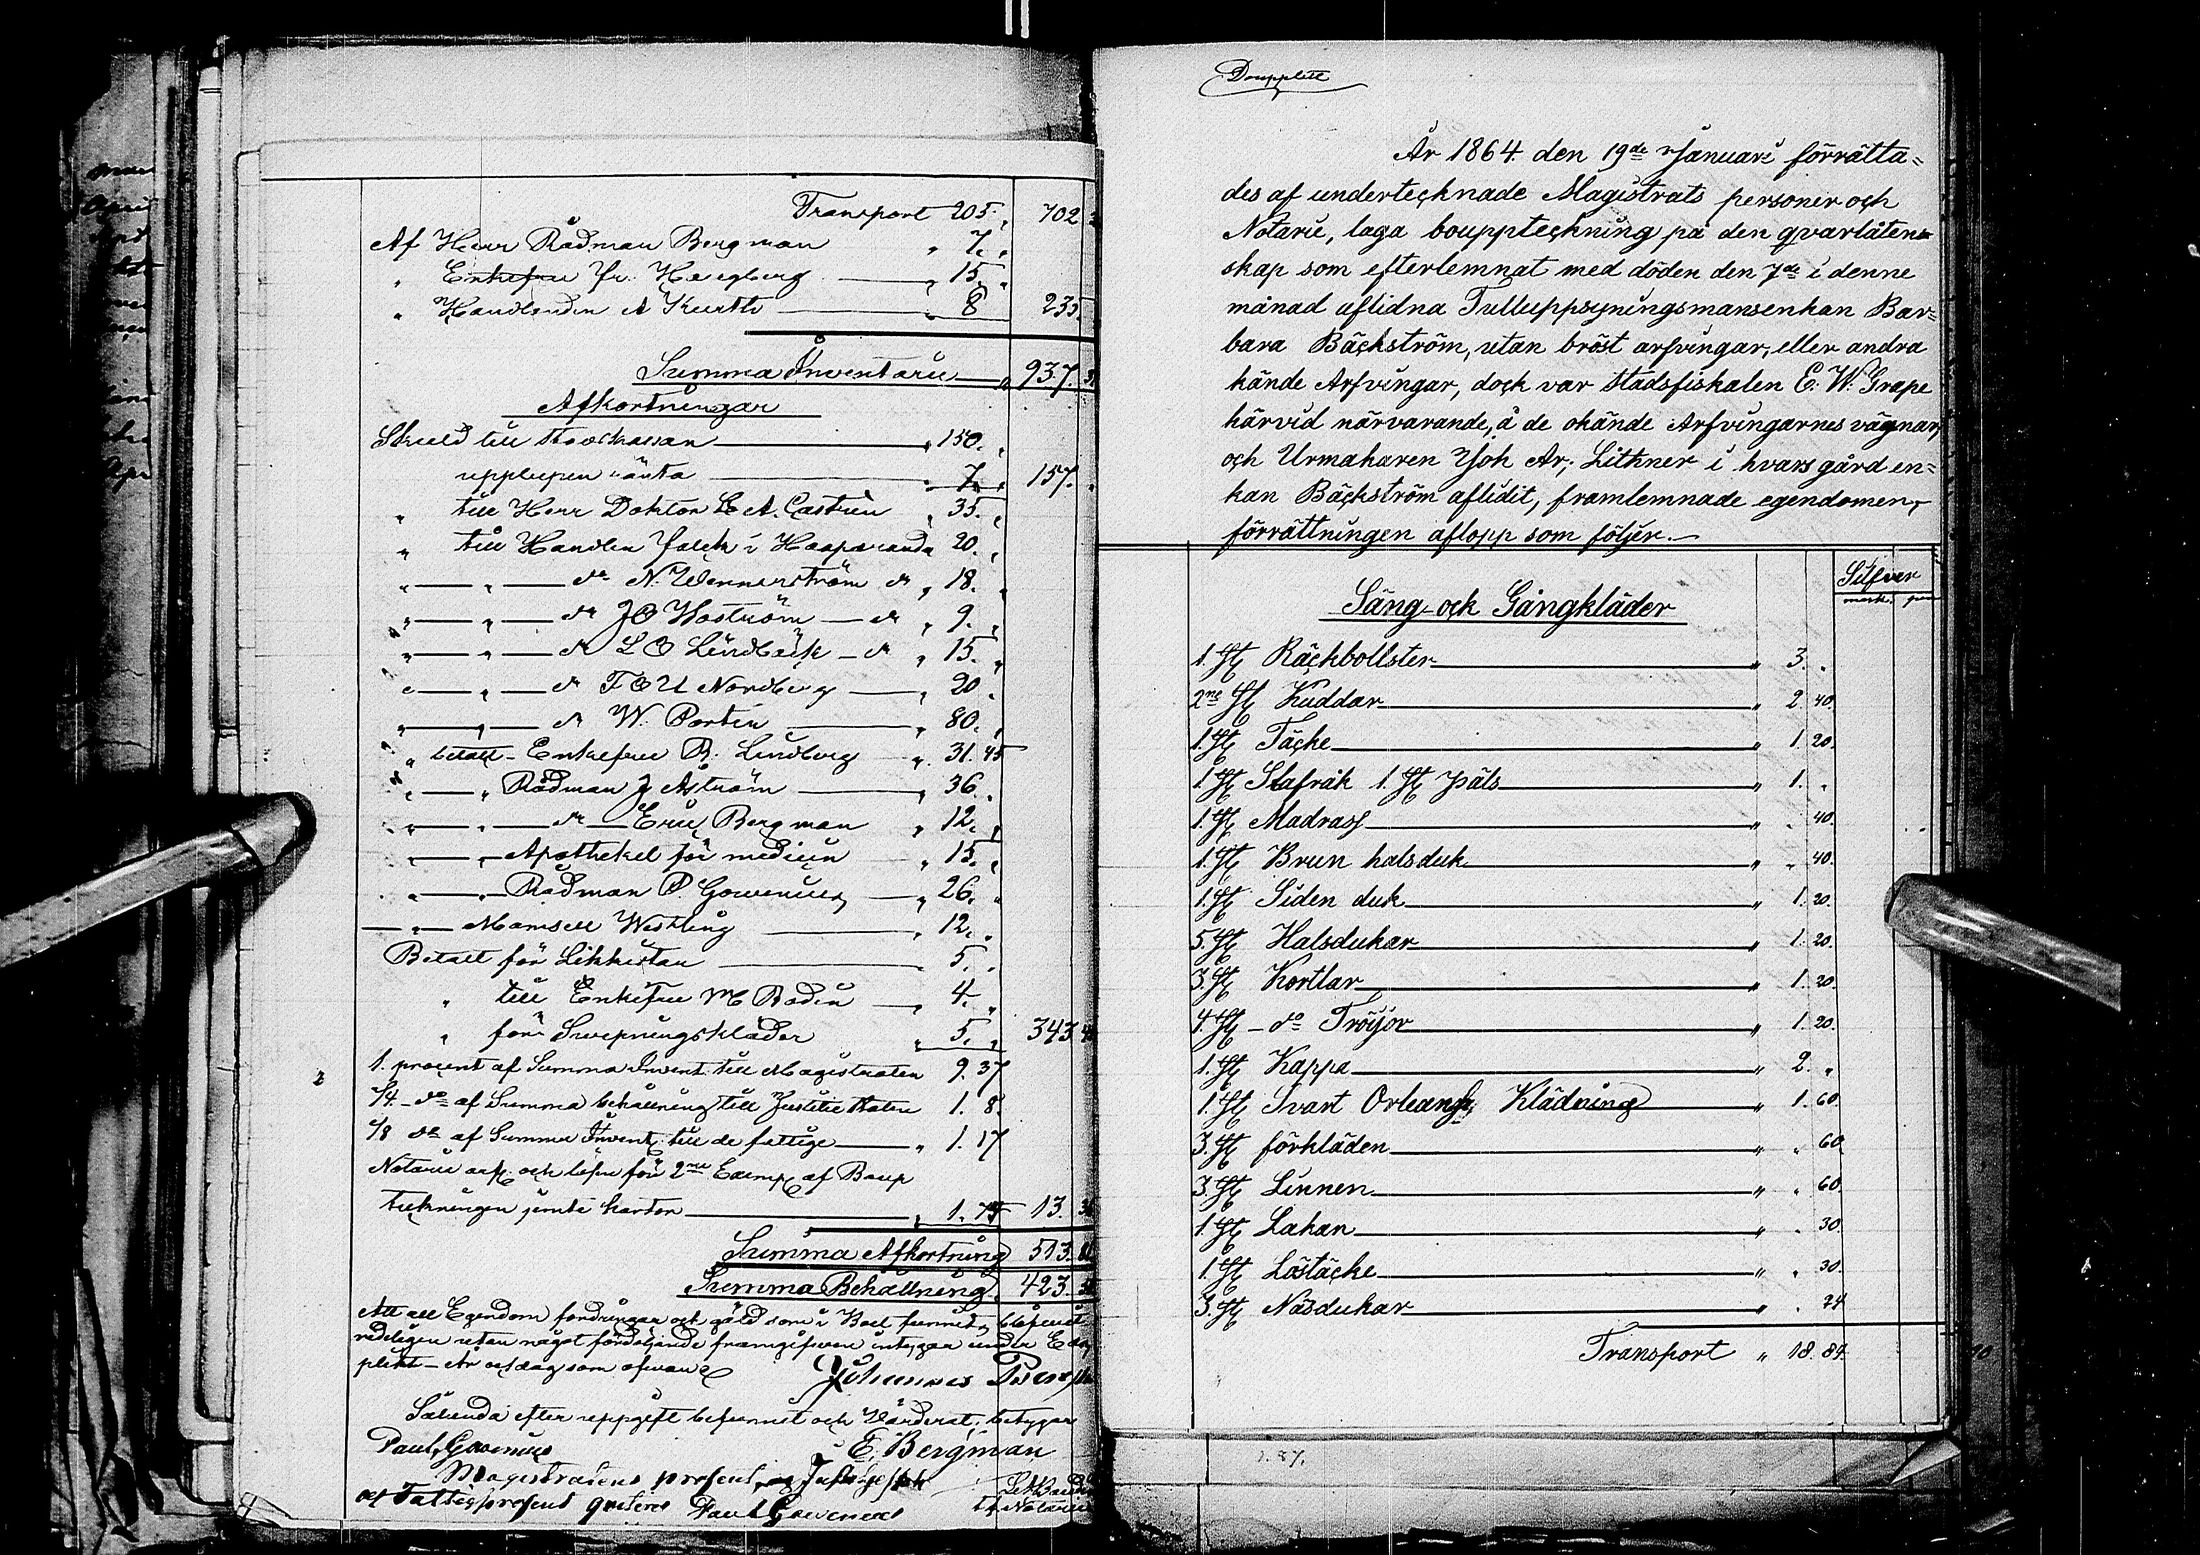 Transport 205. 702
Af Herr Rådman Bergman " 7. "
" Enkefru Fr. Hægberg " 15. "
" Handlanden A Kurth " 8 235.
Summa Inventarie " 937.
Afkortningar
Skuld till Stadskassan " 150. "
upplupen ränta " 7. " 157. "
" till Herr Doktor L E A. Castrén " 35. "
" till Handlen Falck i Haaparanda 20. "
" " do N. Wennerström do " 18. "
" " do J O Woström do " 9. "
" " do L O Lindbäck do " 15. "
" " do F O U Nordberg " 20 "
" " do W. Portin " 80. "
" betalt Enkefru B. Lindberg " 31. 45
" " Rådman J Åström " 36. "
" " do Eric Bergman " 12. "
" Apothekel för medicin " 15. "
" Rådman P. Gowenius " 26. "
" Mamsell Westling " 12. "
Betalt för Likkistan 5. "
" till Enkefru M Bodin " 4. "
" för Swepningskläder " 5. " 343
1. procent af Summa Invent. till Magistraten 9. 37
1/4 do af Summa behållning till Justitie Staten 1. 8.
1/8 do af Summa Invent. till de fattige " 1. 17
Notarie arf. och lösen för 2ne Exemp. af Boup
teckningen jemte kartor " 1. 75 13.
Summa Afkortning 513.
Summa Behållning 423.
Att all Egendom fordringar och gäld som i Boet funnits, blifwit
redeligen utan något fördöljande framgifwen intygar under Ed
plikt År och dag som ofwan
Johannes
Sålunda efter uppgift befunnit och Wärderat; betygar
Paul Gowenius E. Bergman
Magistratens prosent,
och Fattigprosent qviteras Paul Gowenius t.f. Notarie
Doupplett
År 1864. den 19de Januari förrätta=
des af undertecknade Magistrats personer och
Notarie, laga bouppteckning på den qvarlåten=
skap som efterlemnat med döden den 7de i denne
månad aflidna Tulluppsyningsmansenkan Bar=
bara Bäckström, utan bröst arfvingar, eller andra
kände Arfvingar, dock var stadsfiskalen E. W. Grape
härvid närvarande, å de okände Arfvingarnes vägnar,
och Urmakaren Joh Ar. Lithner i hvars gård en=
kan Bäckström aflidit, framlemnade egendomen,
förrättningen aflopp som följer.—
Silfver
Säng- och Gångkläder mark. pen
1. St Räckbollster " 3. "
2ne St Kuddar " 2 40.
1. St Täcke " 1. 20.
1. St Slafråk 1. St päls " 1. "
1. St Madrass " " 40.
1. St Brun halsduk " " 40.
1. St Siden duk " 1. 20.
5. St Halsdukar " 1. 20.
3. St Kortlar " 1. 20.
4. St do Tröijor " 1. 20.
1. St Kappa " 2. "
1. St Svart Orleangs Klädning " 1. 60.
3. St förkläden " " 60
3. St Linnen " " 60.
1. St Lakan " " 30.
1. St Löstäcke " " 30.
3. St Näsdukar " " 24
Transport " 18. 84.